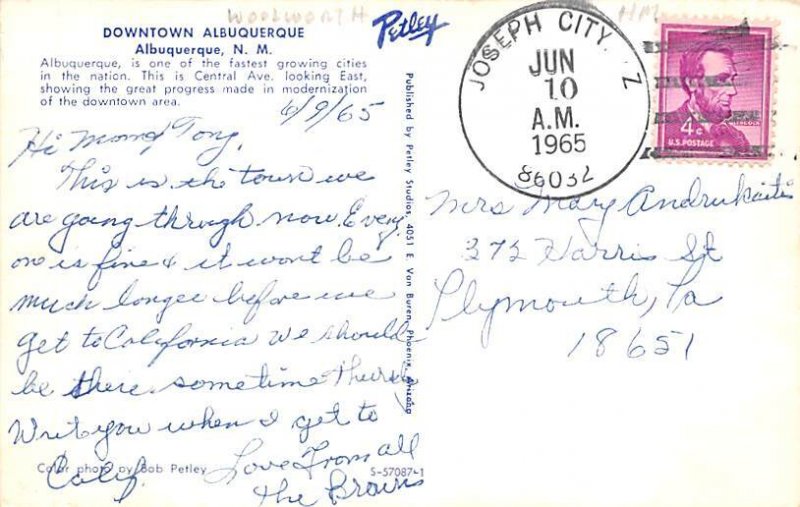 WOOLWORTH
HM
DOWNTOWN ALBUQUERQUE
Albuquerque, N. M.
Albuquerque, is one of the fastest growing cities
in the nation. This is Central Ave. looking East,
showing the great progress made in modernization
of the downtown area.
Petley
6/9/65
Hi Mom & Tony,
This is the town we
are going through now. Every
one is fine & it wont be
much longer before we
get to California We should
be there sometime Thurs.
Write you when I get to
Calif.
Love From all
the Browns
Color photo by Bob Petley
S-57087-1
Published by Petley Studios, 4051 E. Van Buren, Phoenix, Arizona
JOSEPH CITY, Z
JUN
10
A.M.
1965
86032
LINCOLN
4¢
U.S. POSTAGE
Mrs Mary Andrukaitis
372 Harris St
Plymouth, Pa
18651